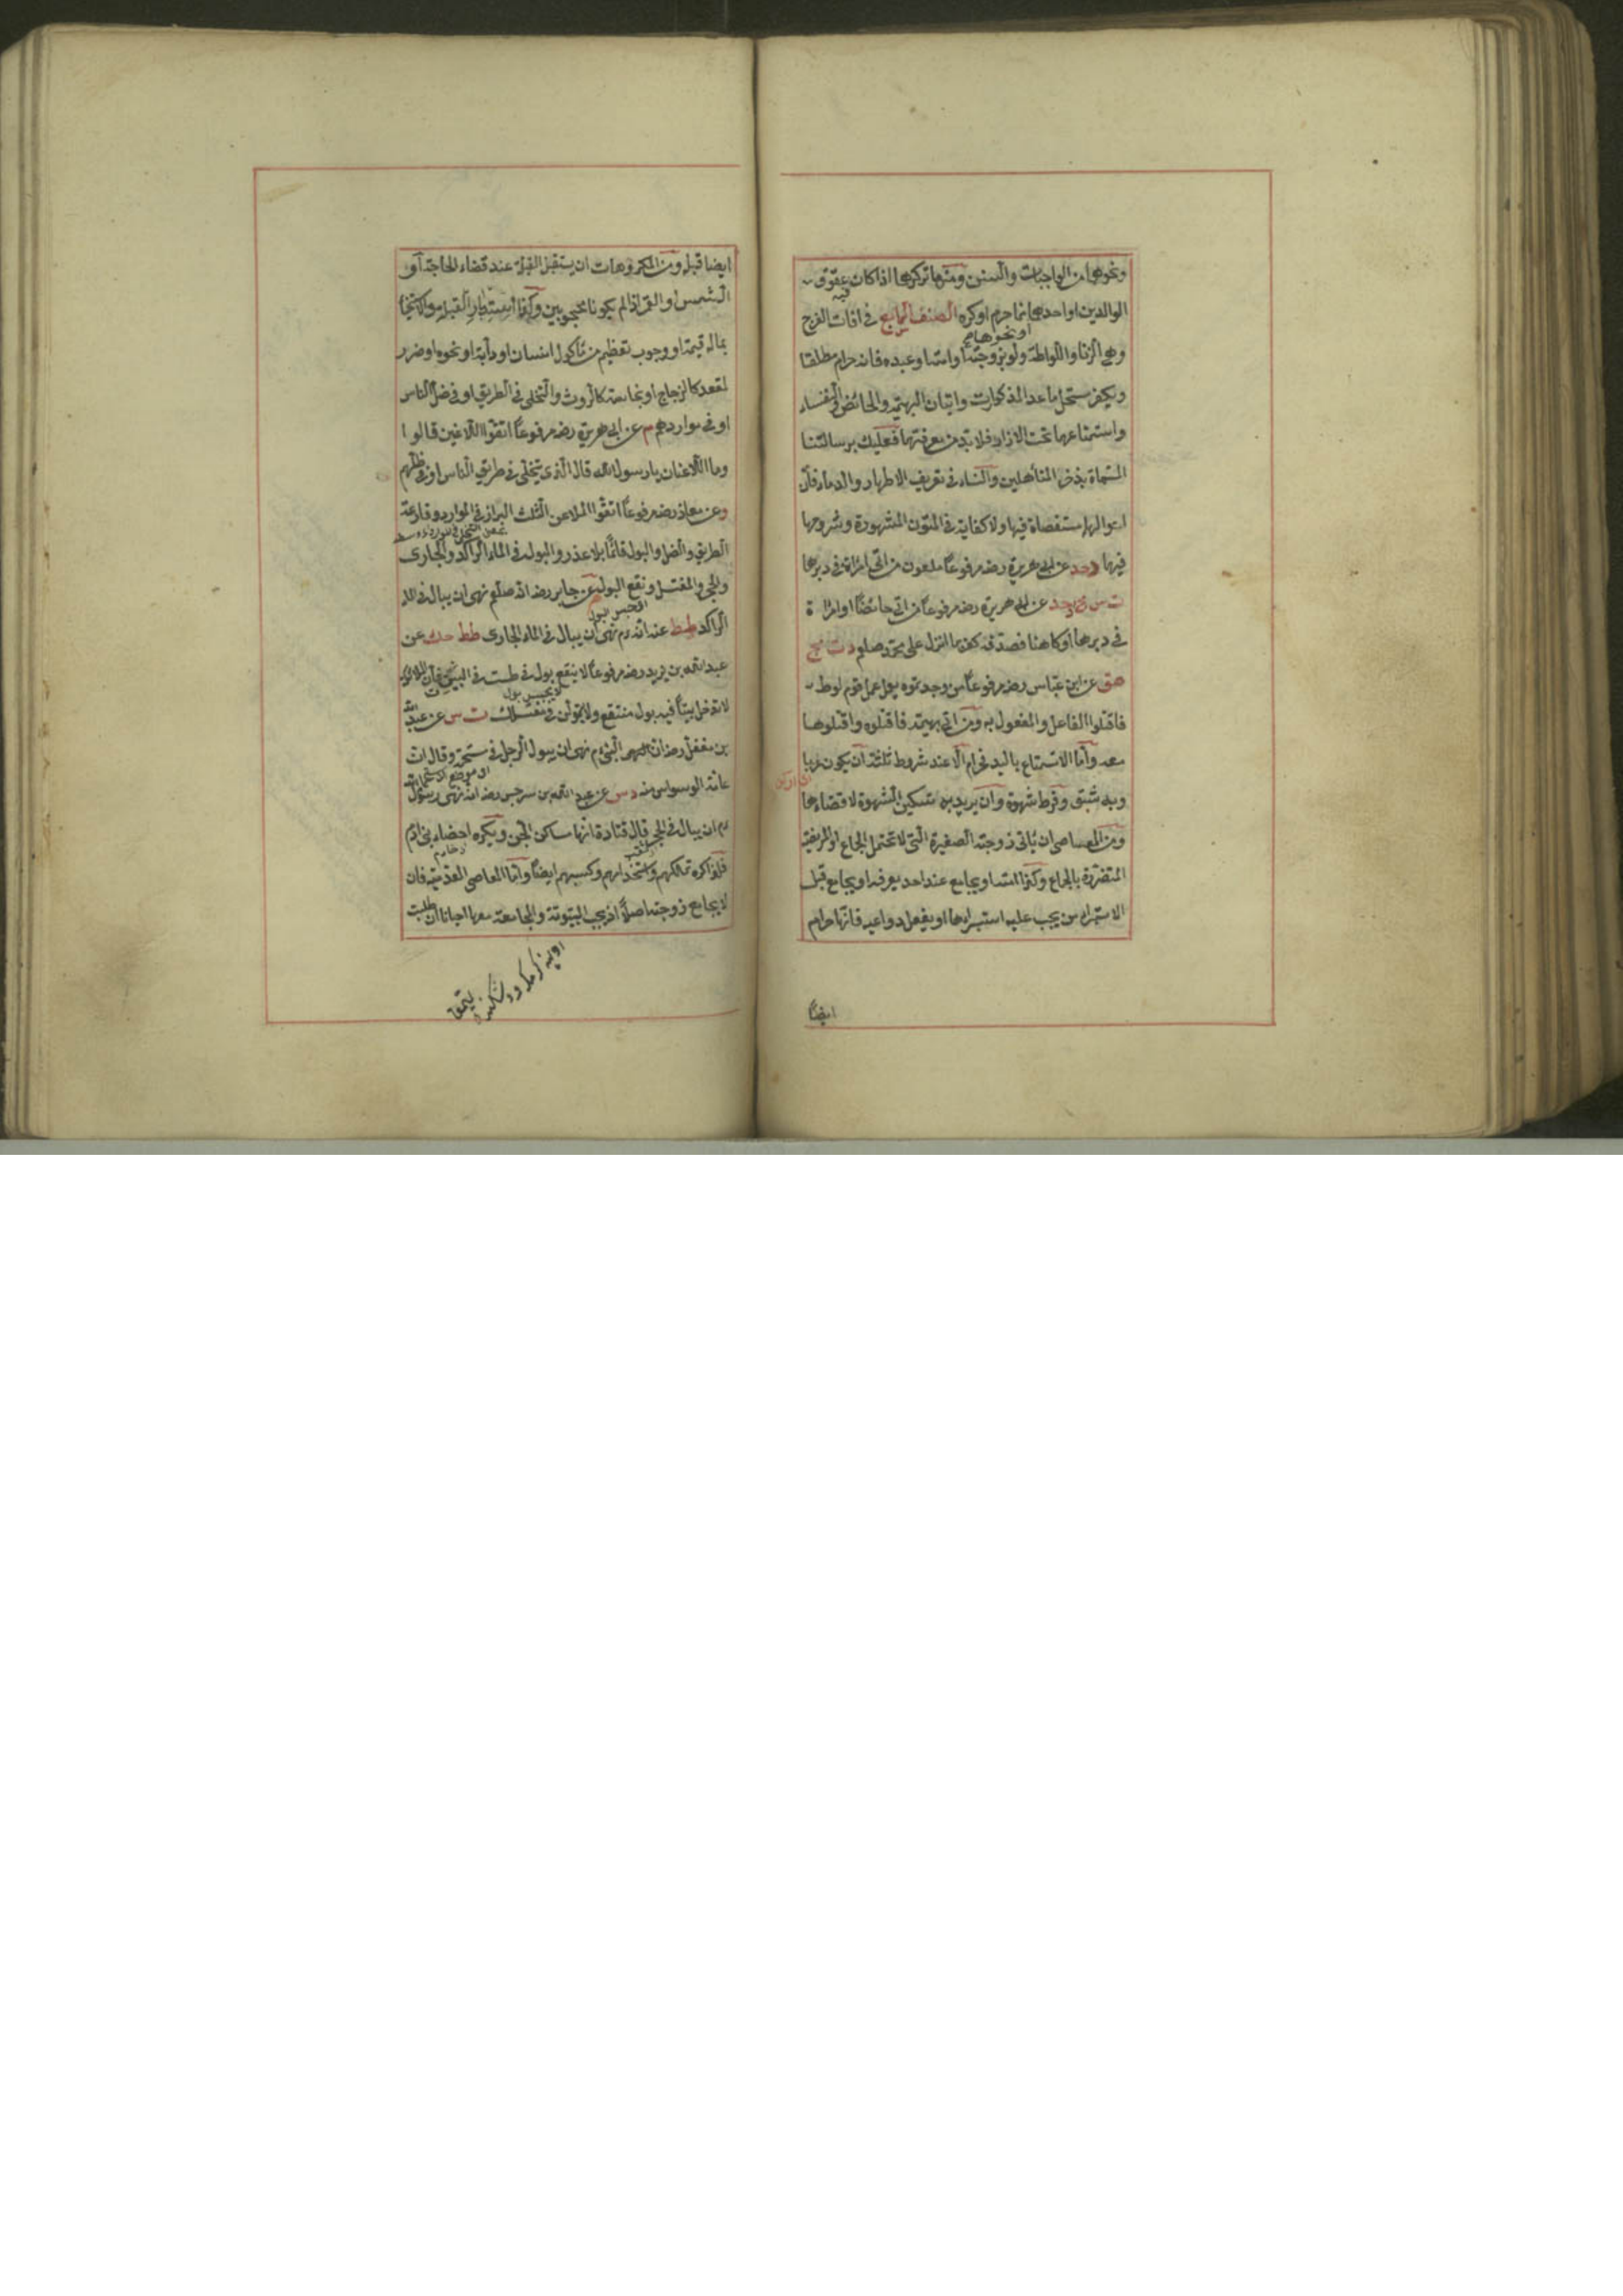 ونحوها من الواجبات والسنن ومنها تركها اذا كان عقوق
الوالدين او احدهما فيه انما حرم او كره الصنف الرابع في افات الفرج
وهي الزنا واللواطة ولو بزوجته او امته او عبده فانه حرام مطلقا
ويكفر مستحل ما عدا المذكورات واتيان البهيمة والحائض والنفساء
واستمتاعهما تحت الازار فلا بد من معرفتها فعليك برسالتنا
المسماة بذخر المتأهلين والنساء في تعريف الاطهار والدماء فان
احوالها مستقصاة فيها ولا كفاية في المتون المشهورة وشروحها
فيها د حد عن ابي هريرة رضه مرفوعاً ملعون من اتى امرأة في دبرها
عن ابي هريرة رضه مرفوعاً من اتى حائضاً او امرأة
في دبرها او كاهنا فصدقه كفر بما انزل على محمد صلعم د ت مج
هق عن ابن عباس رضه مرفوعاً من وجدتموه يعمل عمل قوم لوط
فاقتلوا الفاعل والمفعول به ومن اتى بهيمة فاقتلوه واقتلوها
معه واما الاستمتاع باليد فحرام الا عند شروط ثلثة ان يكون عزبا
وبه شبق وفرط شهوة وان يريد به تسكين الشهوة لا قضاءها
ومن المعاصي ان يأتي زوجته الصغيرة التي لا تحتمل الجماع او المريضة
المتضررة بالجماع وكذا امته او يجامع عند احد يعرفه او يجامع قبل
الاستبراء من يجب عليه استبراءها او يفعل دواعيه فانها حرام
ايضاً
ايضا قبله ومن المكروهات ان يستقبل القبلة عند قضاء الحاجة او
الشمس او القمر اذا لم يكونا محجوبين وكذا استدبار القبلة والاستنجا
بماله قيمة او وجوب تعظيم من مأكول انسان او دابة او نحوه او ضرر
لمقعد كالزجاج او نجاسة كالروث والتخلي في الطريق او في ظل الناس
او في مواردهم م عن ابي هريرة رضه مرفوعاً اتقوا اللاعنين قالوا
وما اللاعنان يا رسول الله قال الذي يتخلى في طريق الناس او في ظلهم
وعن معاذ رضه مرفوعاً اتقوا الملاعن الثلث البراز في الموارد وقارعة
الطريق والظل والبول قائماً بلا عذر والبول في الماء الراكد والجاري
والجحر والمغتسل ونقع البول م عن جابر رضه انه صلعم نهى ان يبال في الماء
او حبس البول
الراكد طط عنه انه عم نهى ان يبال في الماء الجاري طط حك عن
عبد الله بن يزيد رضه مرفوعاً لا ينقع بول في طست في البيت فان الملائكة
لا تدخل بيتاً فيه بول منتقع ولا تبولن في مغتسلك ت س عن عبد الله
بن مغفل رضه ان النبي عم نهى ان يبول الرجل في مستحمه وقال ان
عامة الوسواس منه د س عن عبد الله بن سرجس رضه انه نهى رسول الله
عم ان يبال في الجحر قال قتادة انها مساكن الجن ويكره اخصاء بني ادم
فلذا كره تملكهم واستخدامهم وكسبهم ايضاً واما المعاصي العدمية فان
لا يجامع زوجته اصلاً اذ يجب البيتوتة والمجامعة معها احيانا ان طلبت